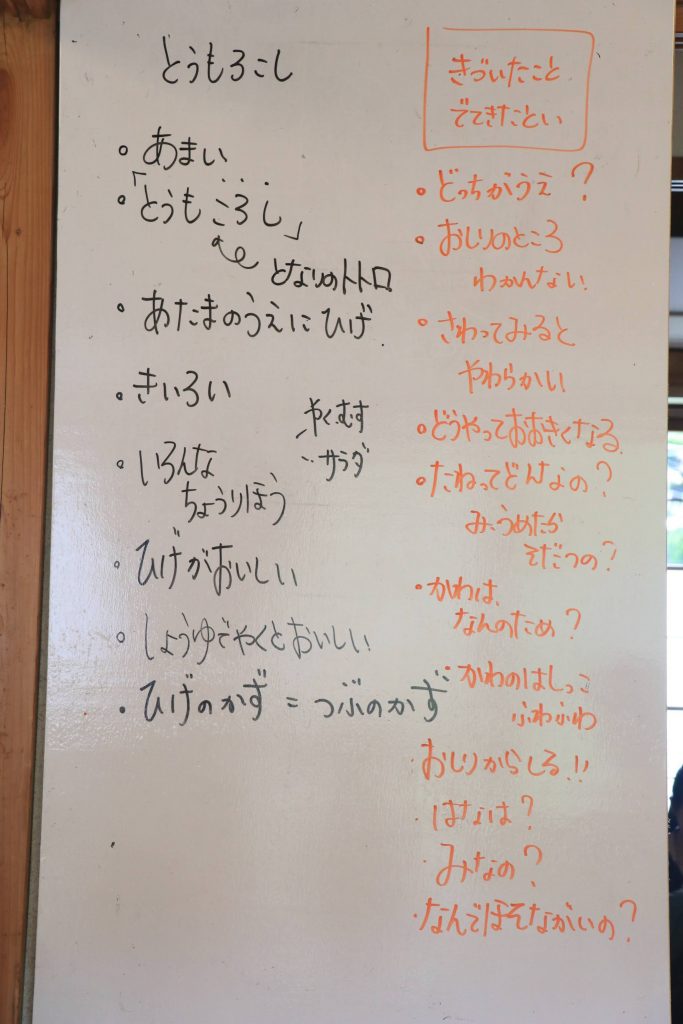 とうもろこし
・あまい
・「とうもころし」
となりのトトロ
・あたまのうえにひげ
・きいろい
・いろんな
ちょうりほう
やく、むす
サラダ
・ひげがおいしい
・しょうゆでやくとおいしい
・ひげのかず=つぶのかず
きづいたこと
でてきたとい
・どっちがうえ?
・おしりのところ
わかんない
・さわってみると
やわらかい
・どうやっておおきくなる
・たねってどんなの?
み、うめたか
そだつの?
・かわは、
なんのため?
・かわのはしっこ
ふわふわ
・おしりからしる!!
・はなは?
・みなの?
・なんでほそながいの?